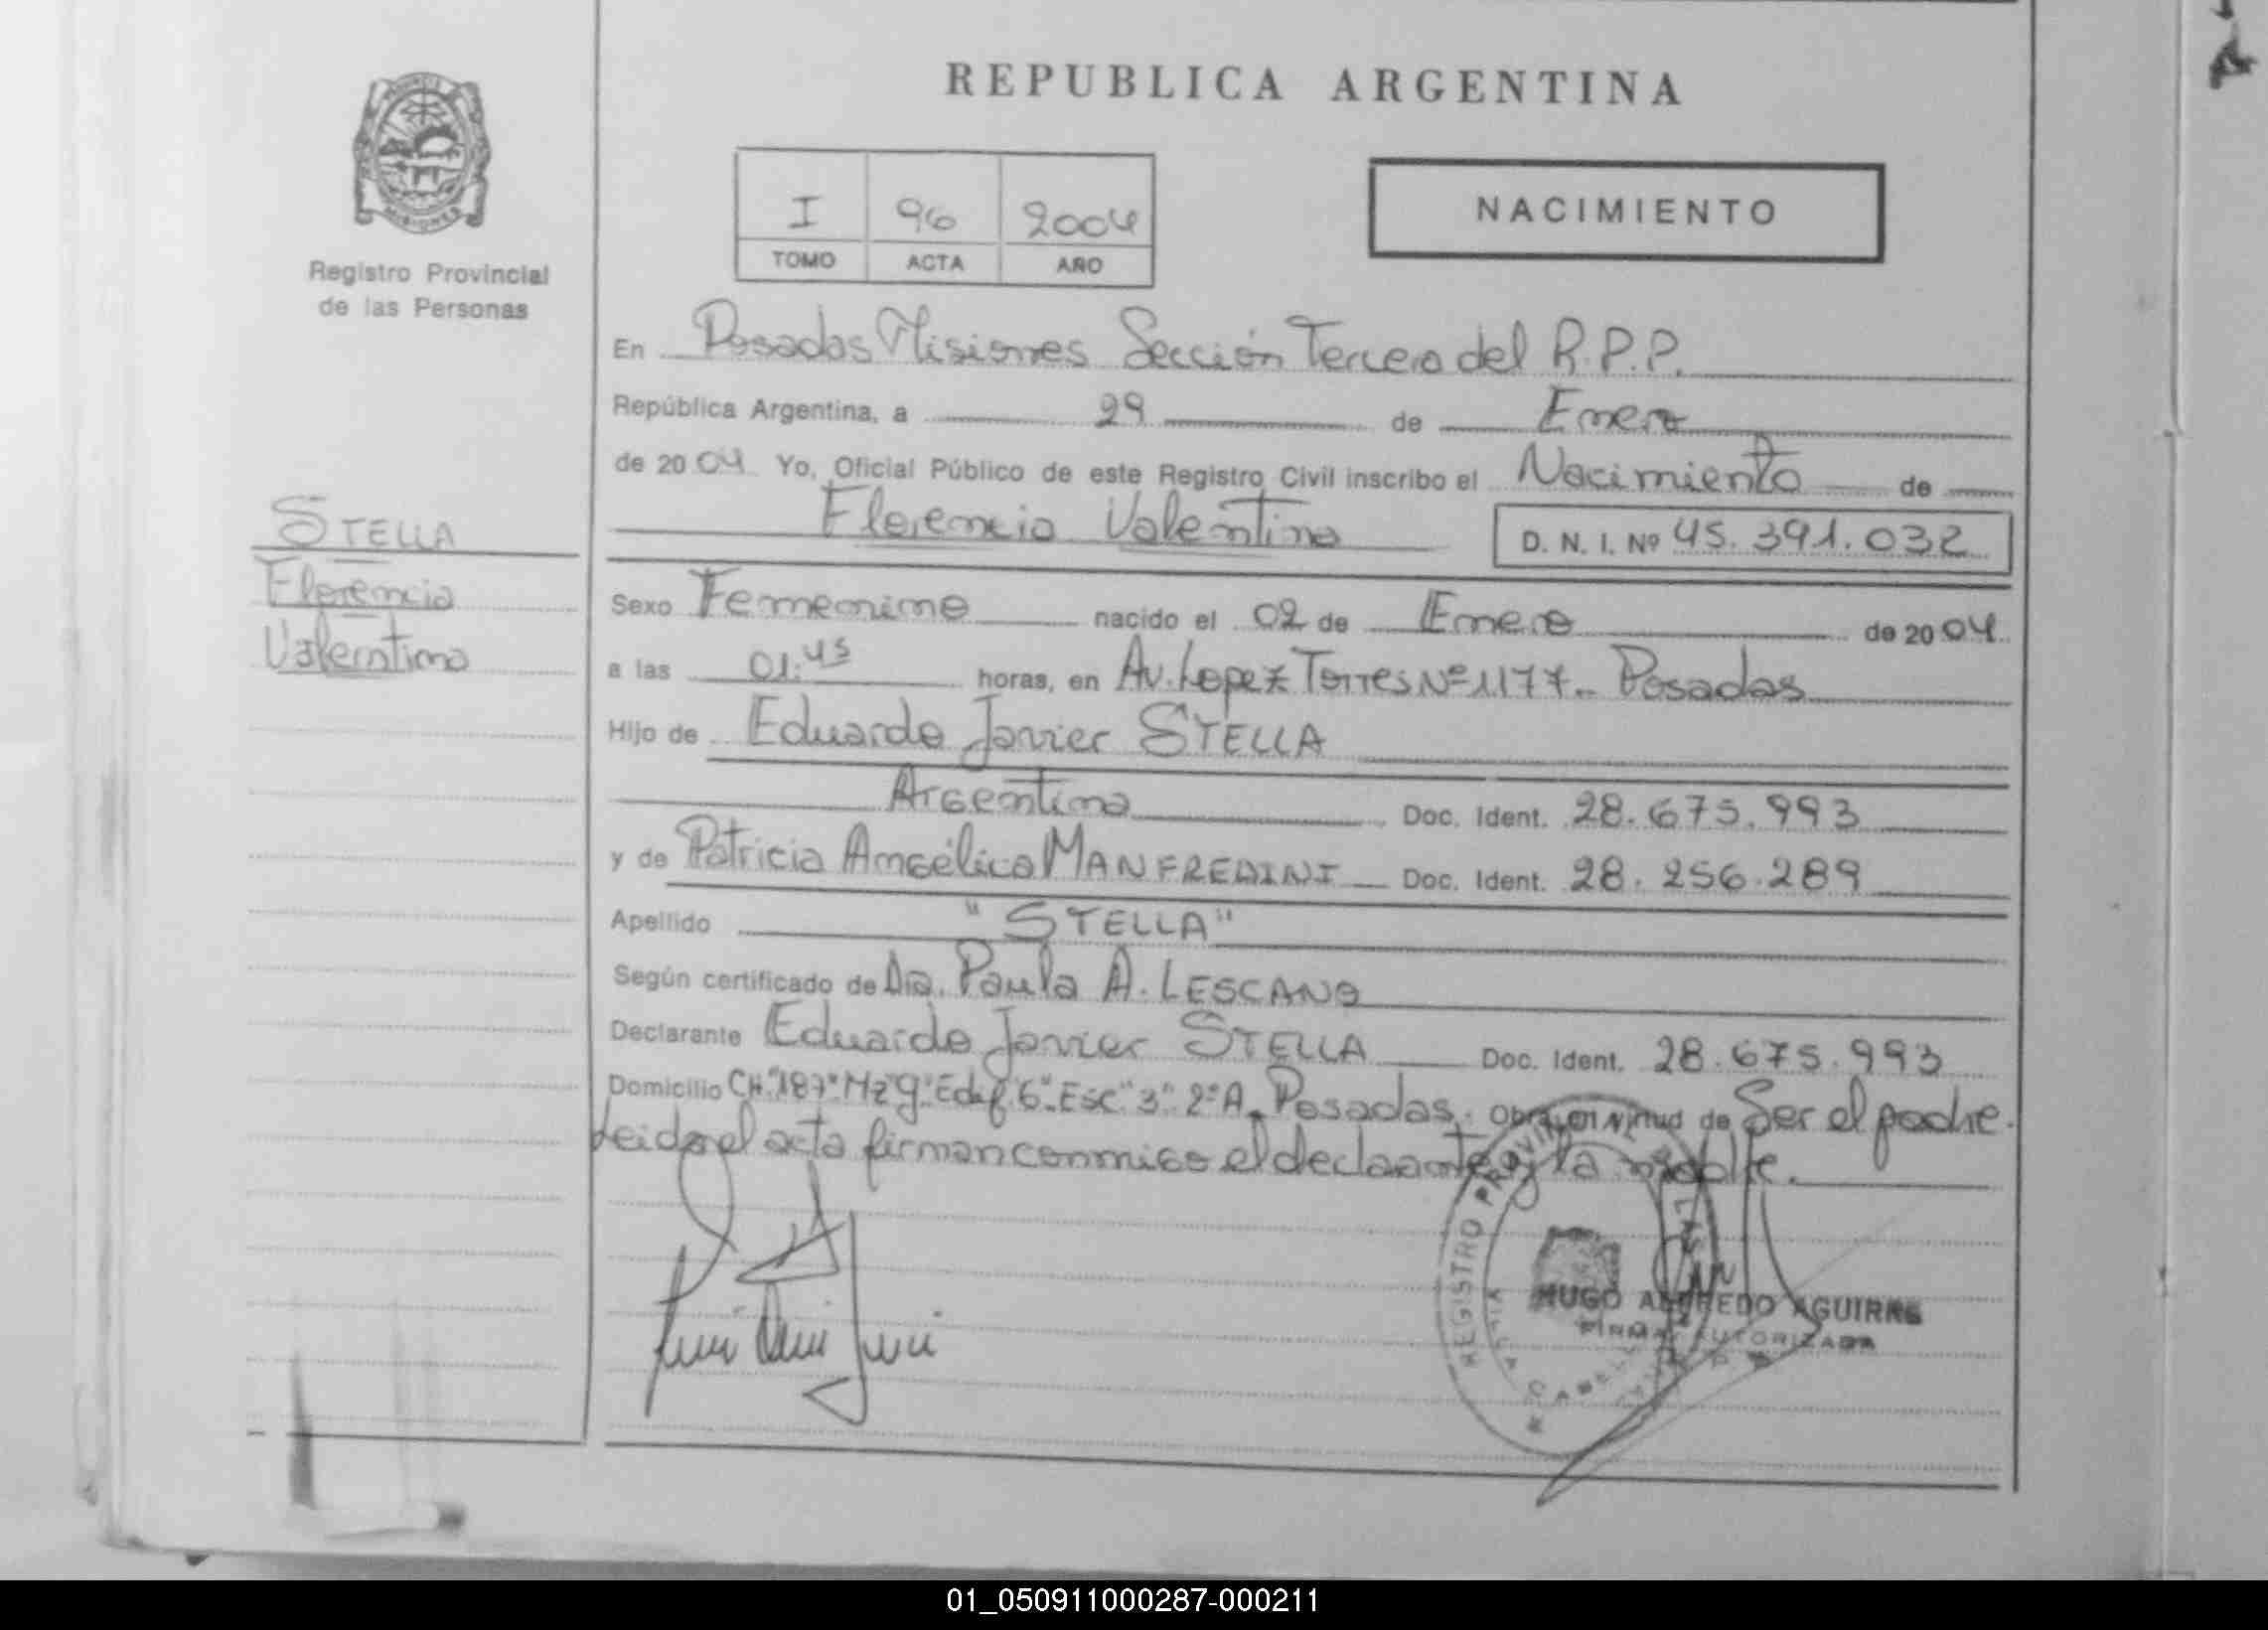 REPUBLICA ARGENTINA
NACIMIENTO
I 96 2004
TOMO ACTA AÑO
Registro Provincial
de las Personas
En Posadas Misiones Sección Tercera del R.P.P.
República Argentina, a 29 de Enero
de 2004 Yo, Oficial Público de este Registro Civil inscribo el Nacimiento de
Florencia Valentina D. N. I. Nº 45.391.032
STELLA
Florencia
Valentina
Sexo Femenino nacido el 02 de Enero de 2004
a las 01:45 horas, en Av. Lopez Torres Nº 1177- Posadas
Hijo de Eduardo Javier STELLA
Argentina Doc. Ident. 28.675.993
y de Patricia Angélica MANFREDINI Doc. Ident. 28.256.289
Apellido "STELLA"
Según certificado de Dra. Paula A. LESCANO
Declarante Eduardo Javier STELLA Doc. Ident. 28.675.993
Domicilio CH."187" Mz"9" Edif."6" Esc"3" 2º A. Posadas. Obra en virtud de Ser el padre.
Leida el acta firman conmigo el declarante y la madre.
REGISTRO
HUGO ALFREDO AGUIRRE
FIRMA AUTORIZADA
MISIONES
01_050911000287-000211